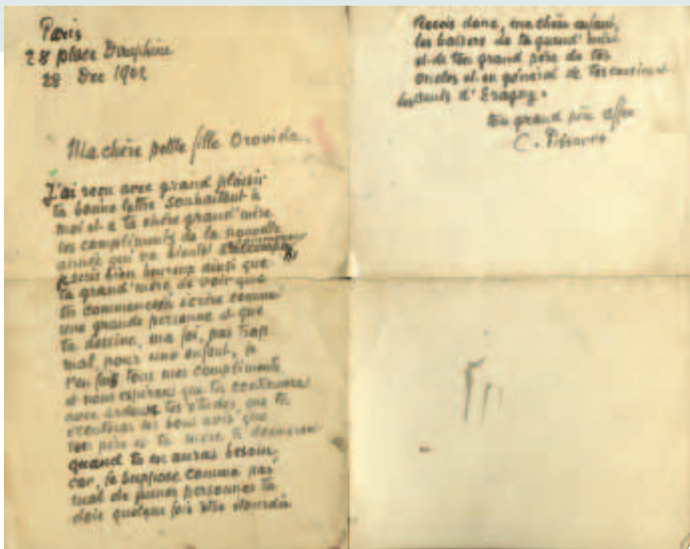 Paris
28 place Dauphine
28 Dec 1902
Ma chère petite fille Orovida.
J'ai reçu avec grand plaisir
ta bonne lettre souhaitant à
moi et à ta chère grand'mère
les compliments de la nouvelle
année qui va bientôt
je suis bien heureux ainsi que
ta grand'mère de voir que
tu commences à écrire comme
une grande personne et que
tu dessine, ma foi, pas trop
mal, pour une enfant, je
t'en fais tous mes compliments
et nous espérons que tu continueras
avec ardeur tes études, que tu
écouteras les bons avis que
ton père et ta mère te donneront
quand tu en auras besoin,
car, je suppose comme pas
mal de jeunes personnes tu
dois quelque fois être étourdie.
Reçois donc, ma chère enfant,
les baisers de ta grand'mère
et de ton grand père de tes
oncles et en général de tes cousins
d'Eragny.
ton grand père affec
C. Pissarro